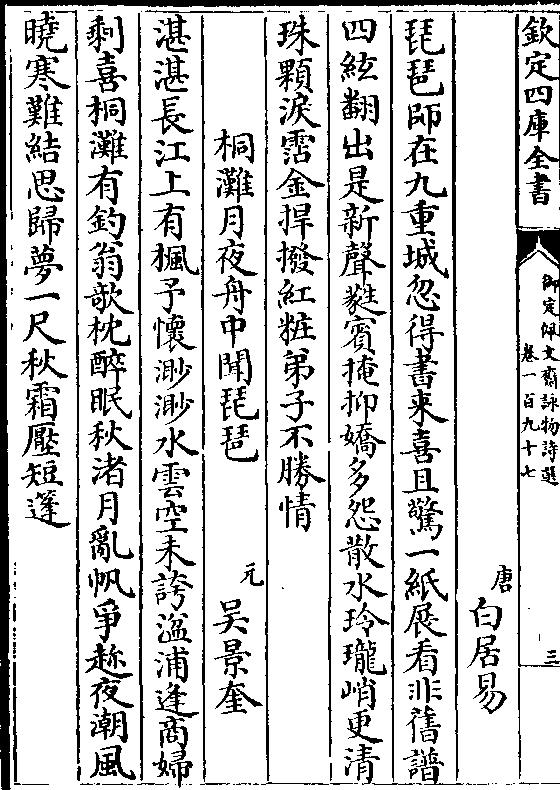 欽定四庫全書
御定佩文齋詠物詩選
卷一百九十七
三
唐
白居易
琵琶師在九重城忽得書来喜且驚一紙展看非舊譜
四絃翻出是新聲蕤賓掩抑嬌多怨散水玲瓏峭更清
珠顆淚霑金捍撥紅粧弟子不勝情
桐灘月夜舟中聞琵琶
元
吴景奎
湛湛長江上有楓予懷渺渺水雲空未誇湓浦逢商婦
剩喜桐灘有釣翁歌枕醉眠秋渚月亂帆爭趂夜潮風
曉寒難結思歸夢一尺秋霜壓短篷